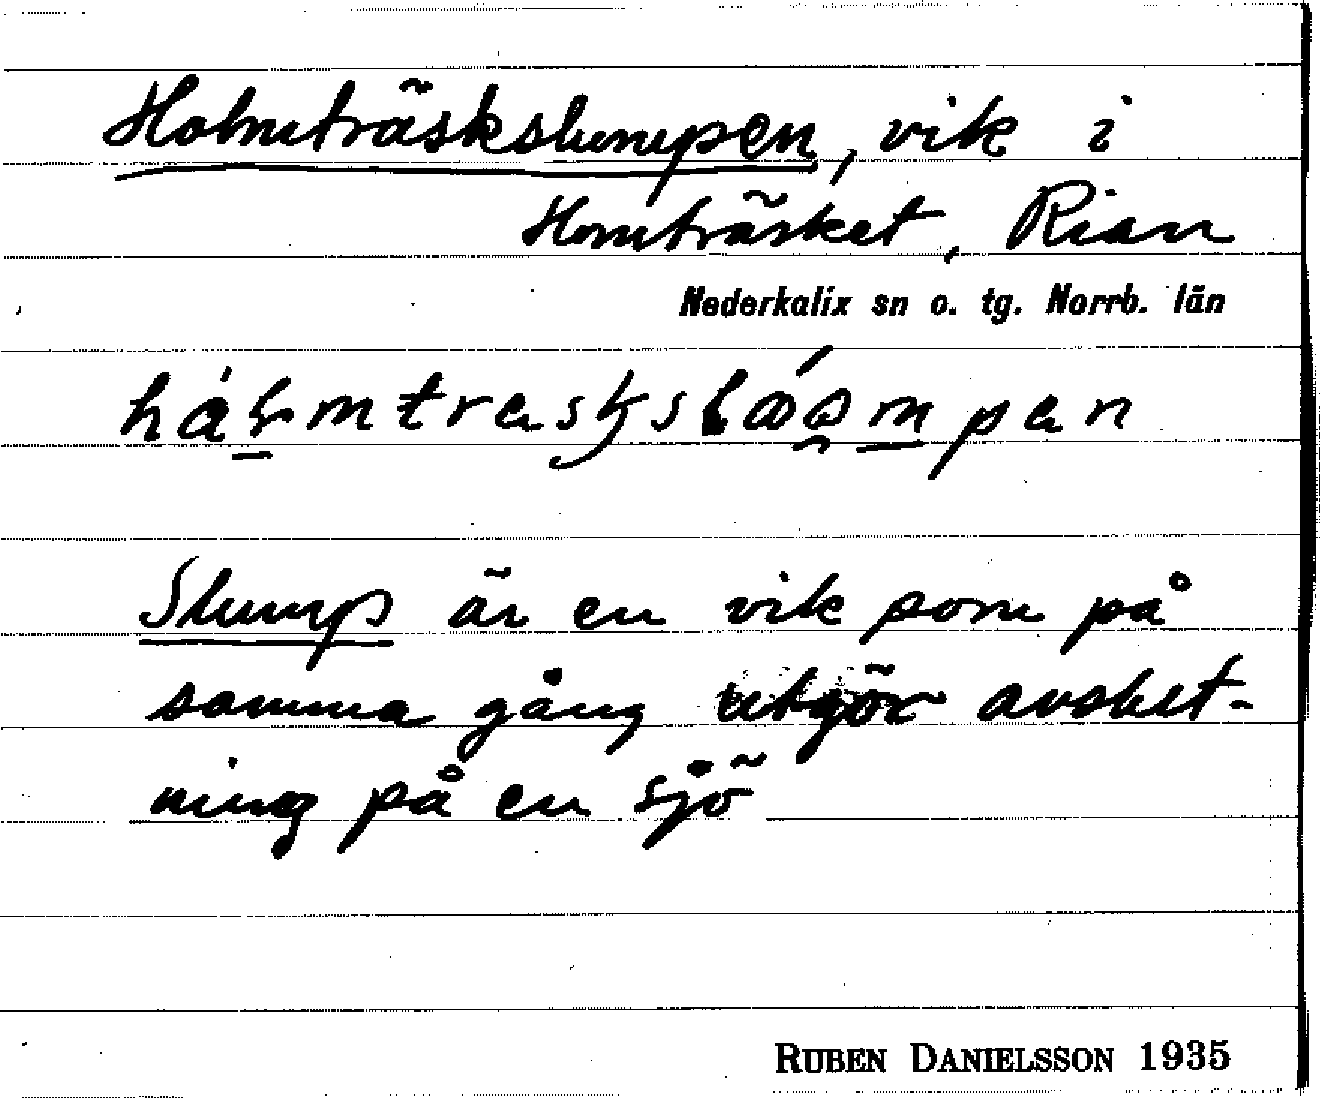 Holmträskslumpen, vik i
Homträsket, Rian
Nederkalix sn o. tg. Norrb. län
Slump är en vik som på
samma gång utgör avslut-
ning på en sjö
RUBEN DANIELSSON 1935